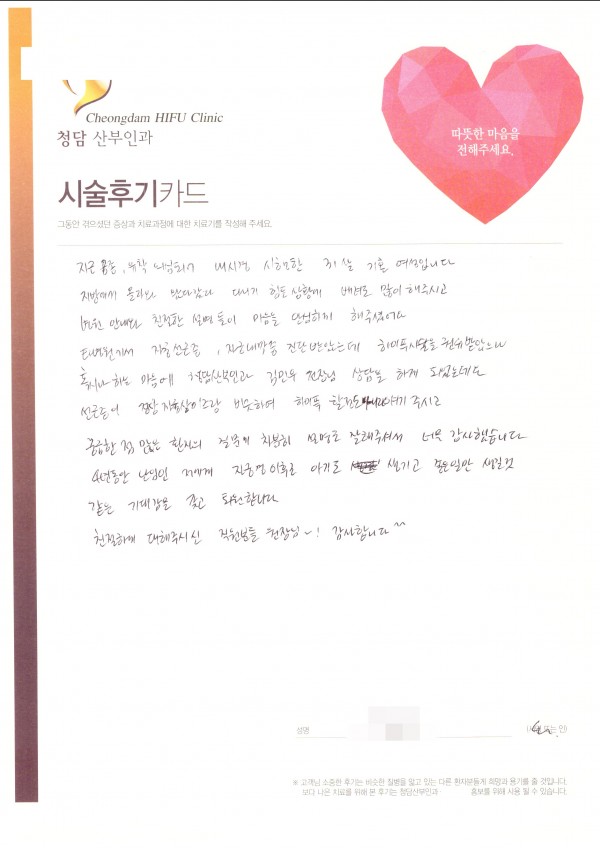 Cheongdam HIFU Clinic
청담 산부인과
따뜻한 마음을
전해주세요.
시술후기카드
그동안 겪으셨던 증상과 치료과정에 대한 치료기를 작성해 주세요.
자근 유착 의심되어 내시경 시술한 31살 기혼 여성입니다
지방에서 올라와 왔다갔다 다니기 힘든 상황에 배려도 많이 해주시고
병원 안내와 친절한 설명들이 마음을 안심하게 해주셨어요
타병원에서 자궁선근증, 자궁내막증 진단받았는데 하이푸시술을 권유받았으나
혹시나 하는 마음에 청담산부인과 김민우 원장님 상담을 하게 되었는데요
선근증이 정상 자궁 비슷하여 하이푸 얘기 주시고
궁금한 점, 많은 환자의 질문에 차분히 설명도 잘해주셔서 너무 감사했습니다
4년동안 난임인 저에게 자궁경 이후로 아기도 생기고 좋은일만 생길것
같은 기대감을 갖고 퇴원합니다
친절하게 대해주시신 직원분들 원장님~! 감사합니다^^
성명
※ 고객님 소중한 후기는 비슷한 질병을 앓고 있는 다른 환자분들께 희망과 용기를 줄 것입니다.
보다 나은 치료를 위해 본 후기는 청담산부인과· 홍보를 위해 사용 될 수 있습니다.